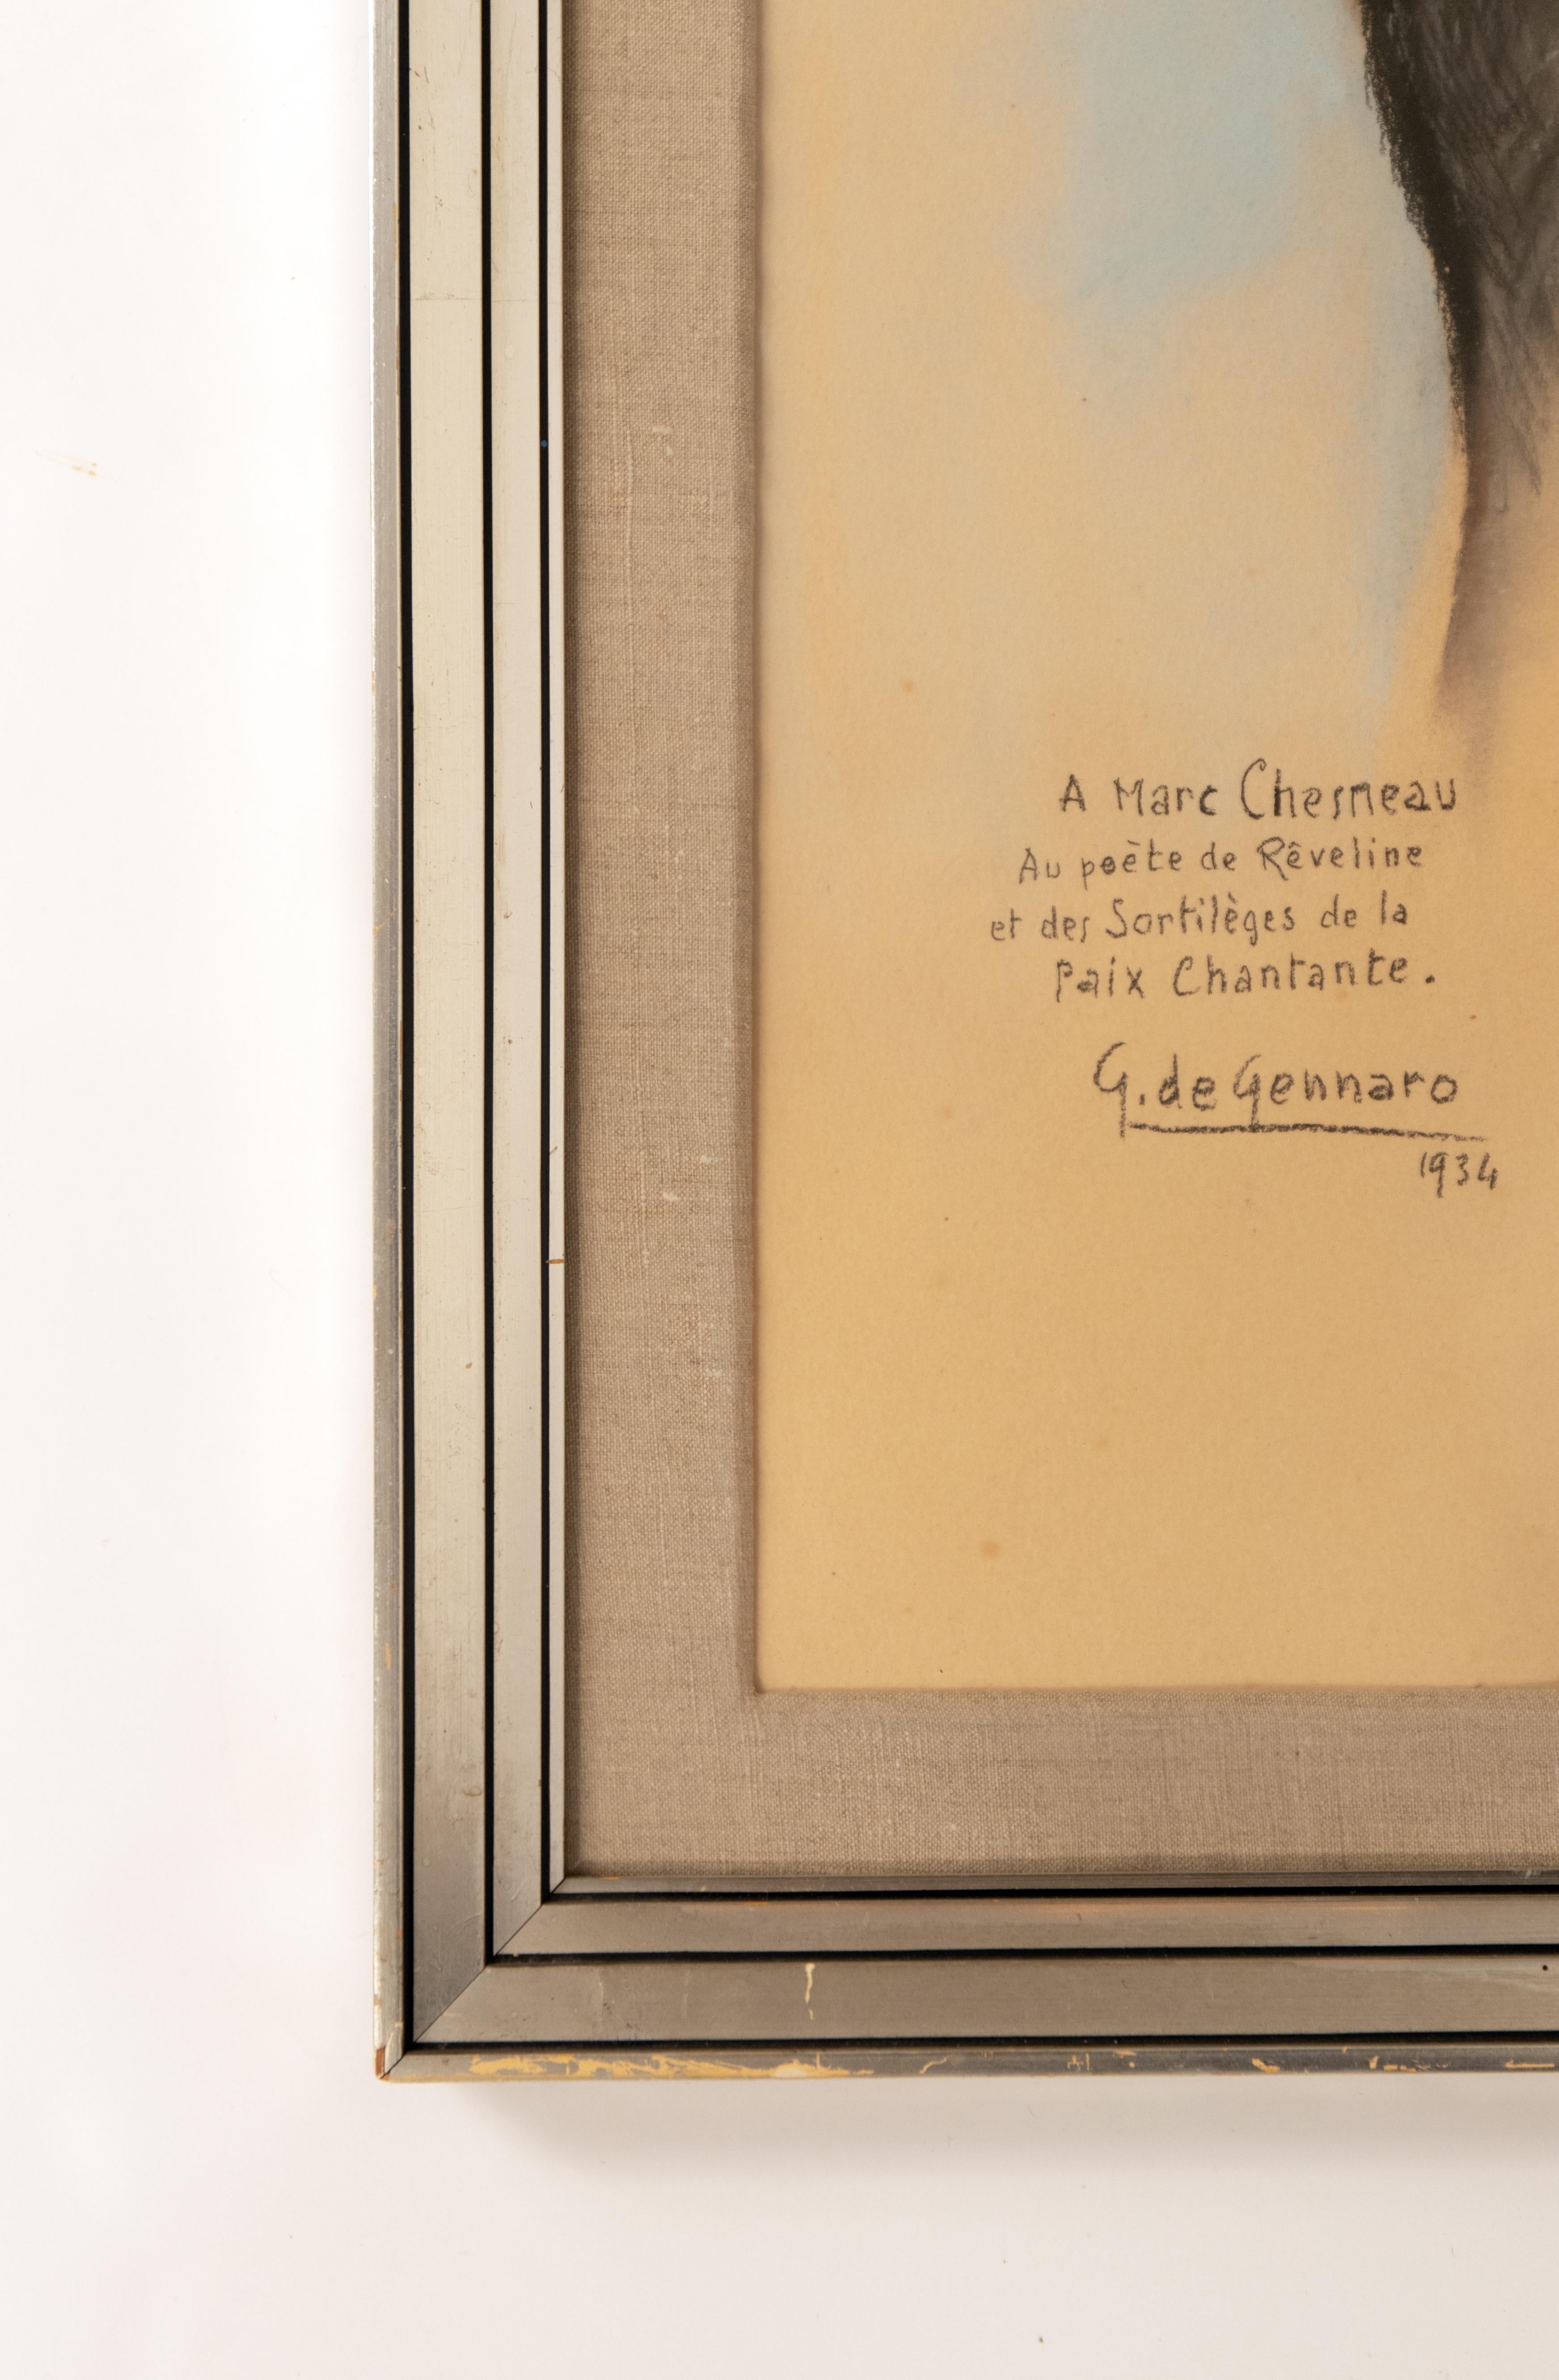 A Marc Chesneau
Au poète de Rêveline
et des Sortilèges de la
Paix Chantante.
G. de Gennaro
1934